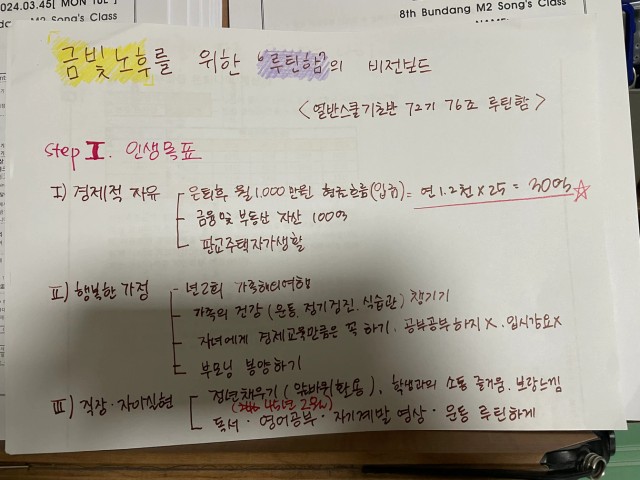 2024.03.45[ MON TUE ]
8th Bundang M2 Song's Class
M2 Song's Class
NAME:
「금빛노후를 위한 "루틴함"의 비전보드
<열반스쿨기초반 72기 76조 루틴함>
step I. 인생목표
I) 경제적 자유
은퇴후 월 1,000만원 현금흐름(입금) = 연 1.2천 × 25 = 30억 ☆
금융및 부동산 자산 100억
판교주택자가생활
II) 행복한 가정
년2회 가족해외여행
가족의 건강 (운동.정기검진.식습관) 챙기기
자녀에게 경제교육만큼은 꼭 하기. 공부공부하지X. 입시강요X
부모님 봉양하기
III) 직장·자아실현
정년채우기 ( 활용). 학생과의 소통 즐거움.보람느낌
45년 2월
독서·영어공부·자기계발 영상·운동 루틴하게